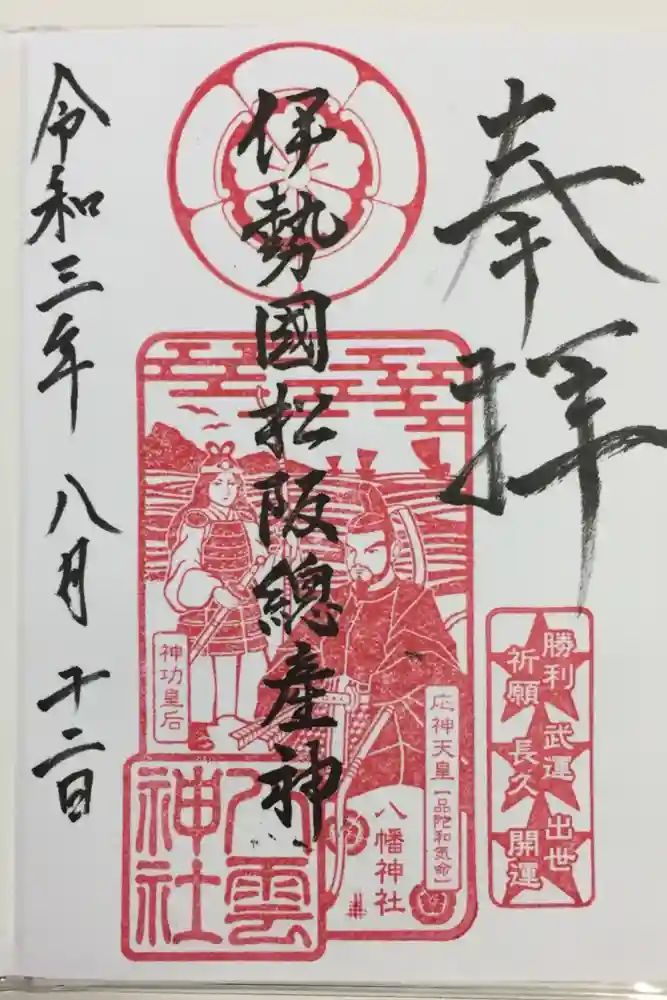 奉拝
伊勢國松阪總産神
令和三年八月十二日
神功皇后
応神天皇【一品陀和気命】
八幡神社
八雲神社
勝利
祈願
武運
長久
出世
開運